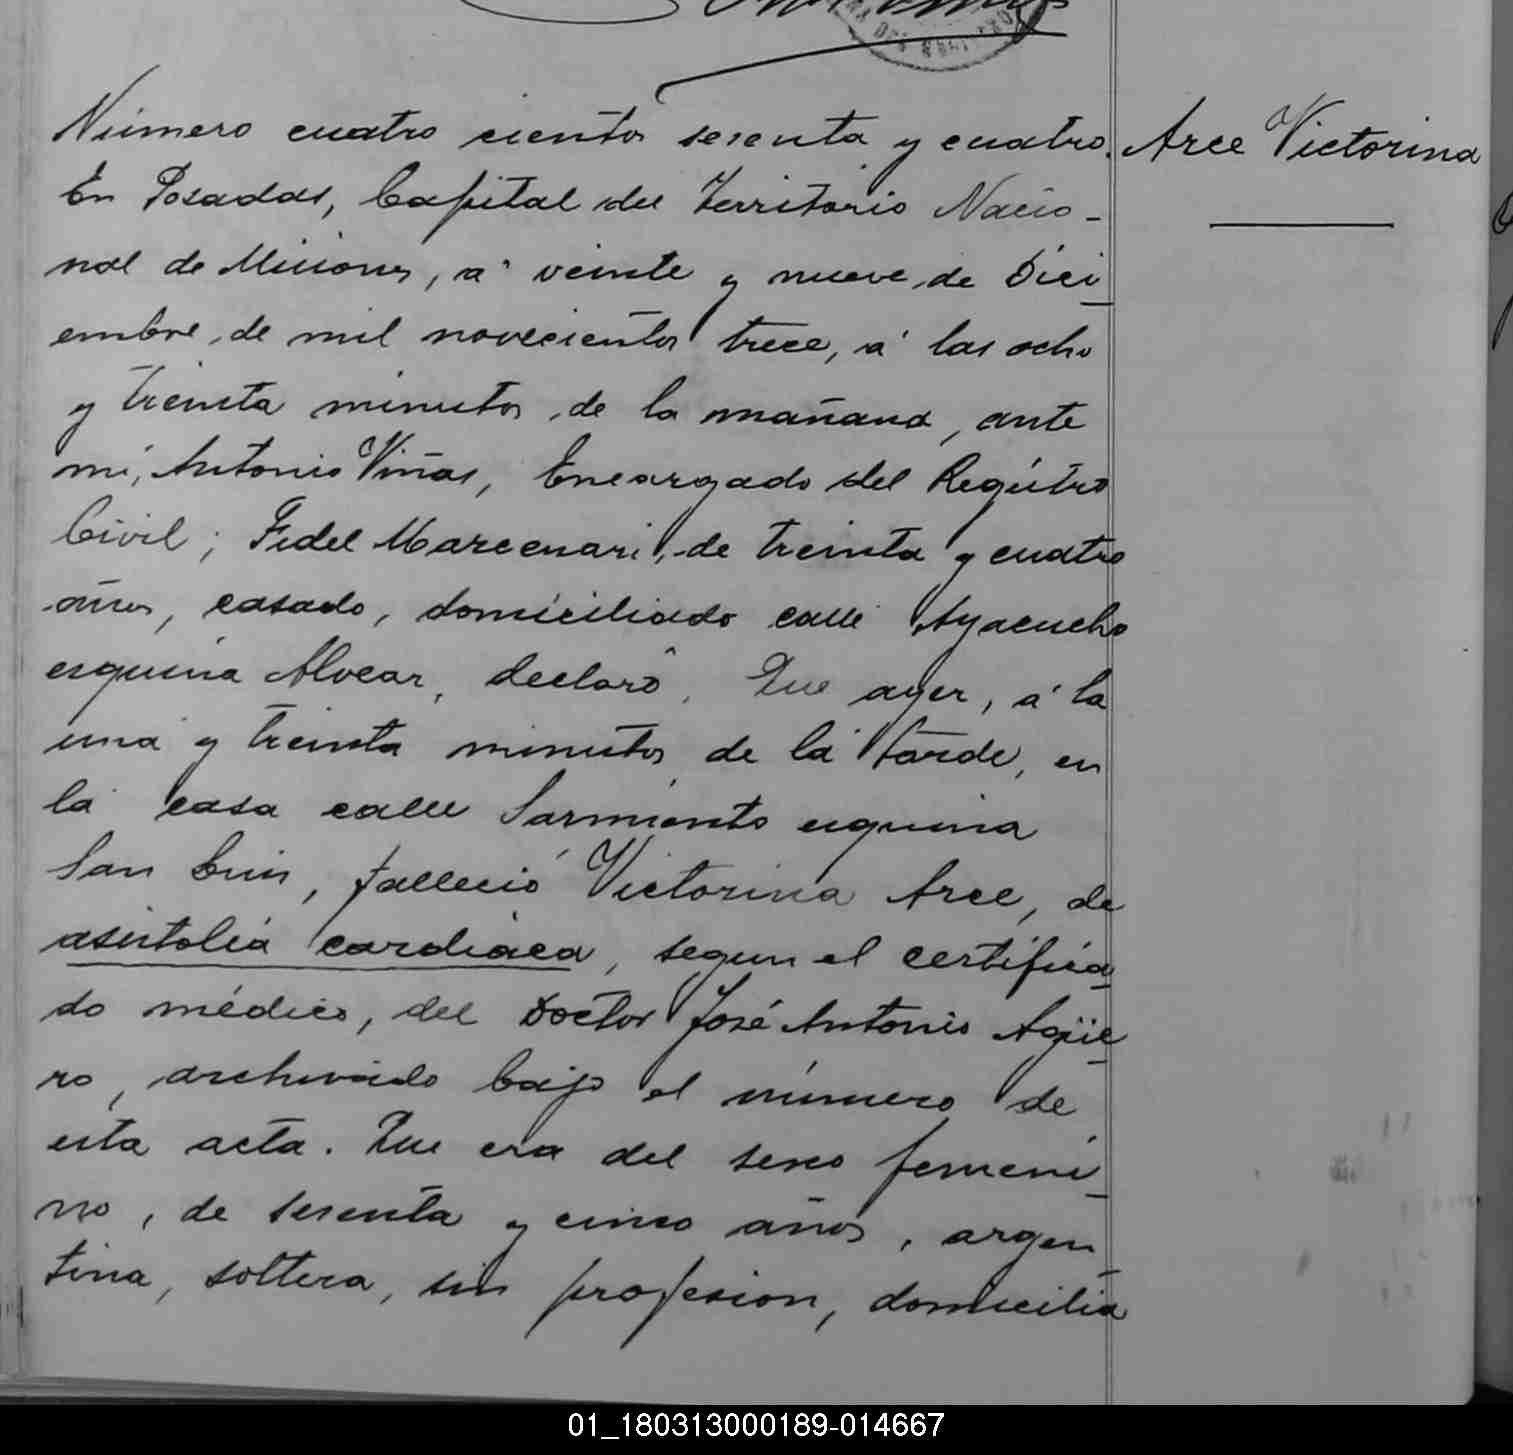 Número cuatro cientos sesenta y cuatro.
Arce Victorina
En Posadas, Capital del Territorio Nacio-
nal de Misiones, á veinte y nueve de Dici-
embre de mil novecientos trece, á las ocho
y treinta minutos de la mañana, ante
mi, Antonio Viñas, Encargado del Registro
Civil; Fidel Marcenari, de treinta y cuatro
años, casado, domiciliado calle Ayacucho
esquina Alvear, declaró. Que ayer, á la
una y treinta minutos de la tarde, en
la casa calle Sarmiento esquina
San Luis, falleció Victorina Arce, de
asistolia cardiaca, segun el certifica-
do médico, del Doctor José Antonio Agüe-
ro, archivado bajo el número de
esta acta. Que era del sexo femeni-
no, de sesenta y cinco años, argen-
tina, soltera, sin profesion, domicilia
01_180313000189-014667